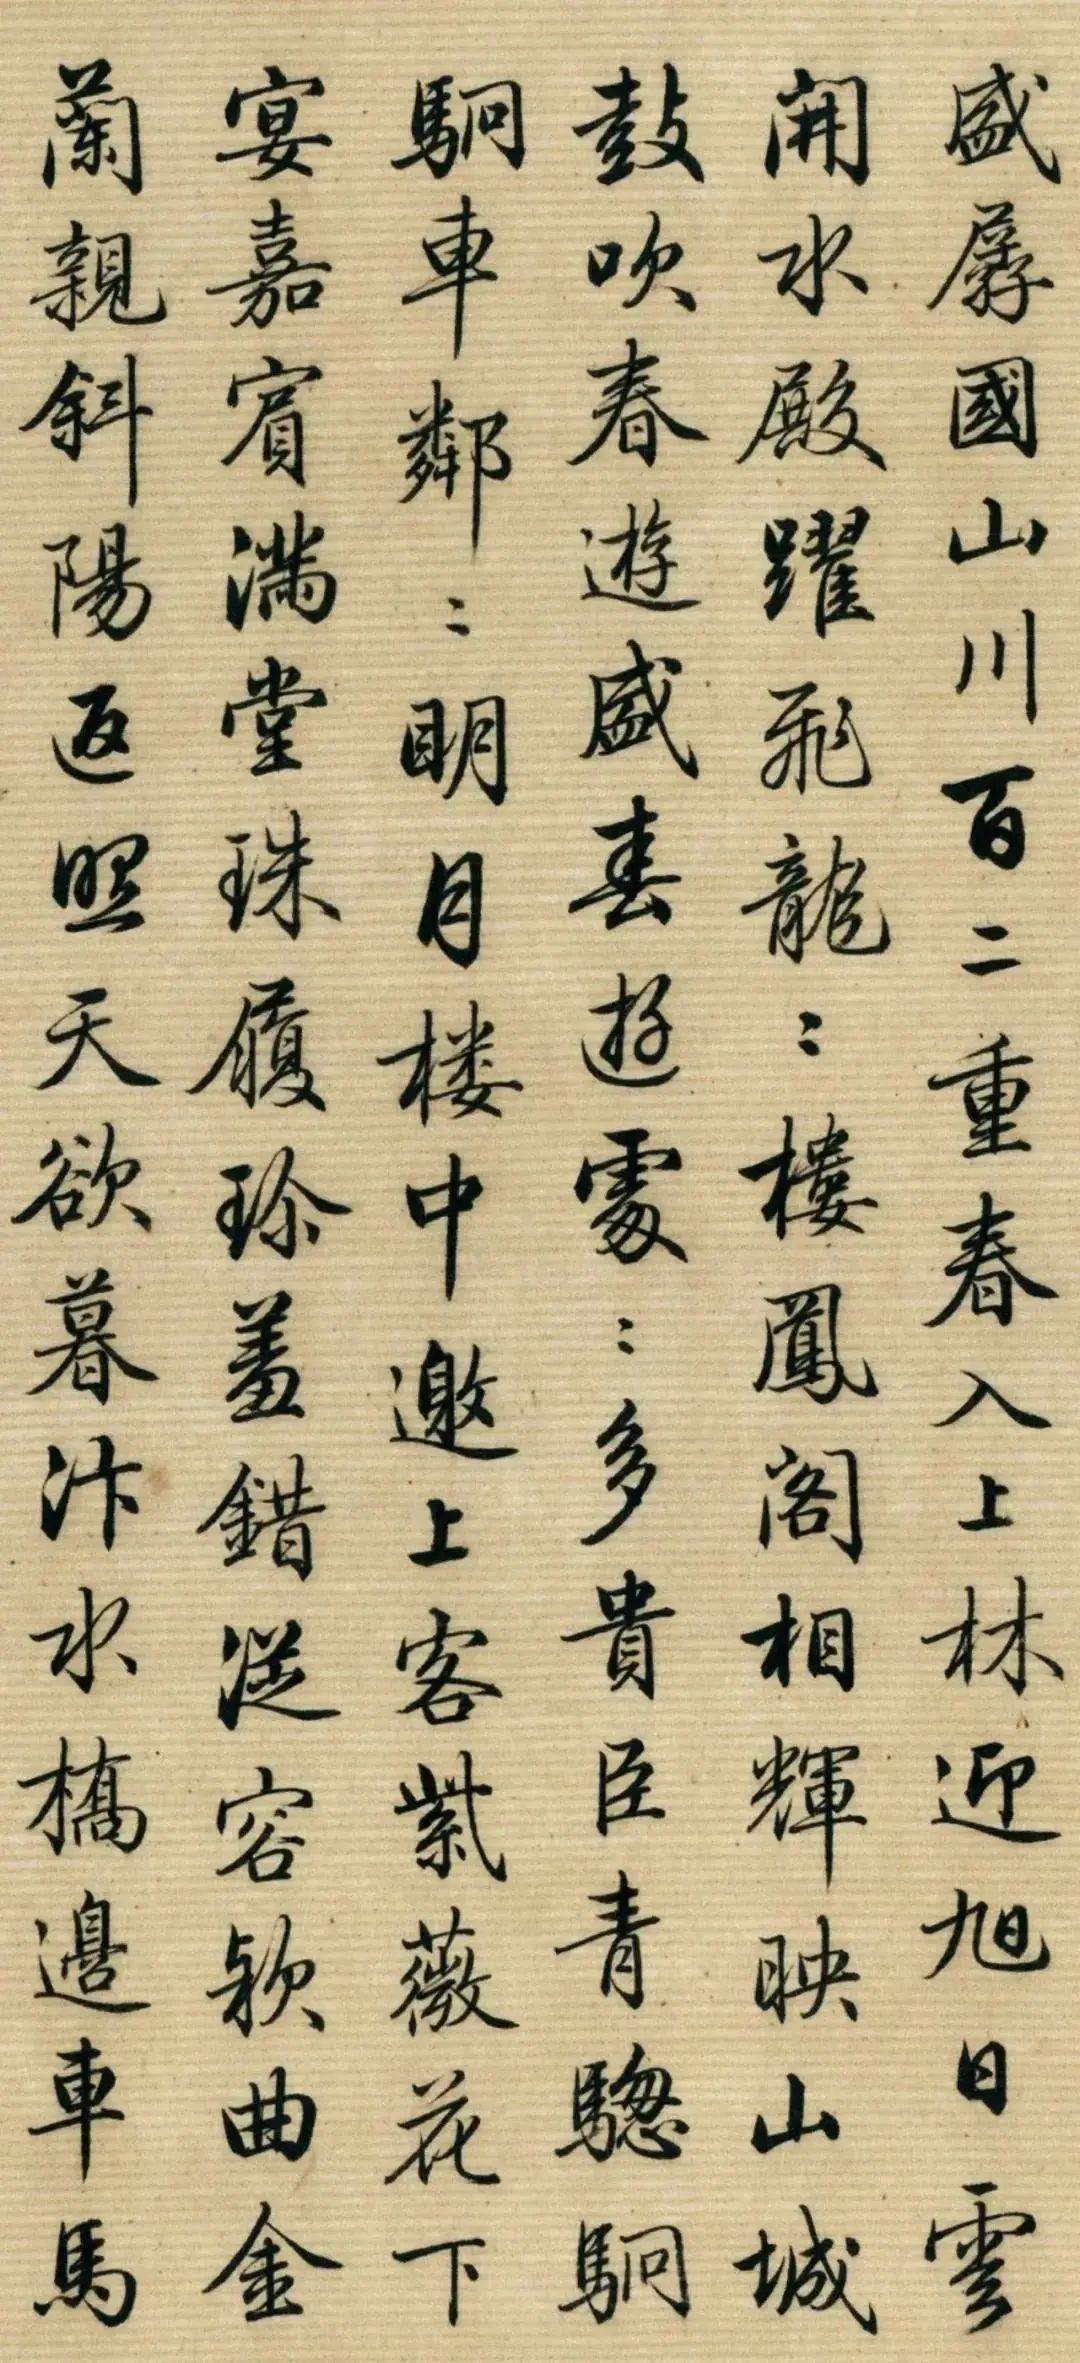 盛孱國山川百二重春入上林迎旭日雲
開水殿躍飛龍〻樓鳳閣相輝映山城
鼓吹春遊盛春遊處〻多貴臣青驄駉
駉車鄰〻明月樓中邀上客紫薇花下
宴嘉賓滿堂珠履珍羞錯從容欵曲金
蘭親斜陽返照天欲暮汴水橋邊車馬